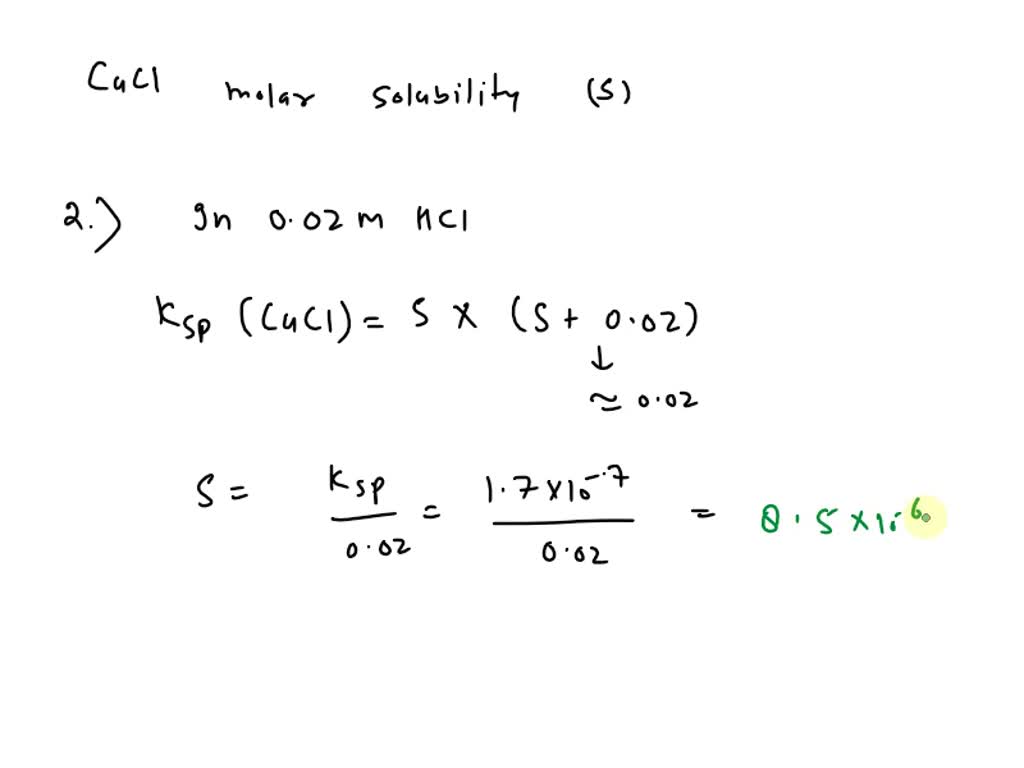 CuCl molar solubility (S)
2.) In 0.02 M HCl
Ksp (CuCl) = S × (S + 0.02)
↓
≈ 0.02
S = Ksp / 0.02 = 1.7 × 10⁻⁷ / 0.02 = 8.5 × 10⁻⁶